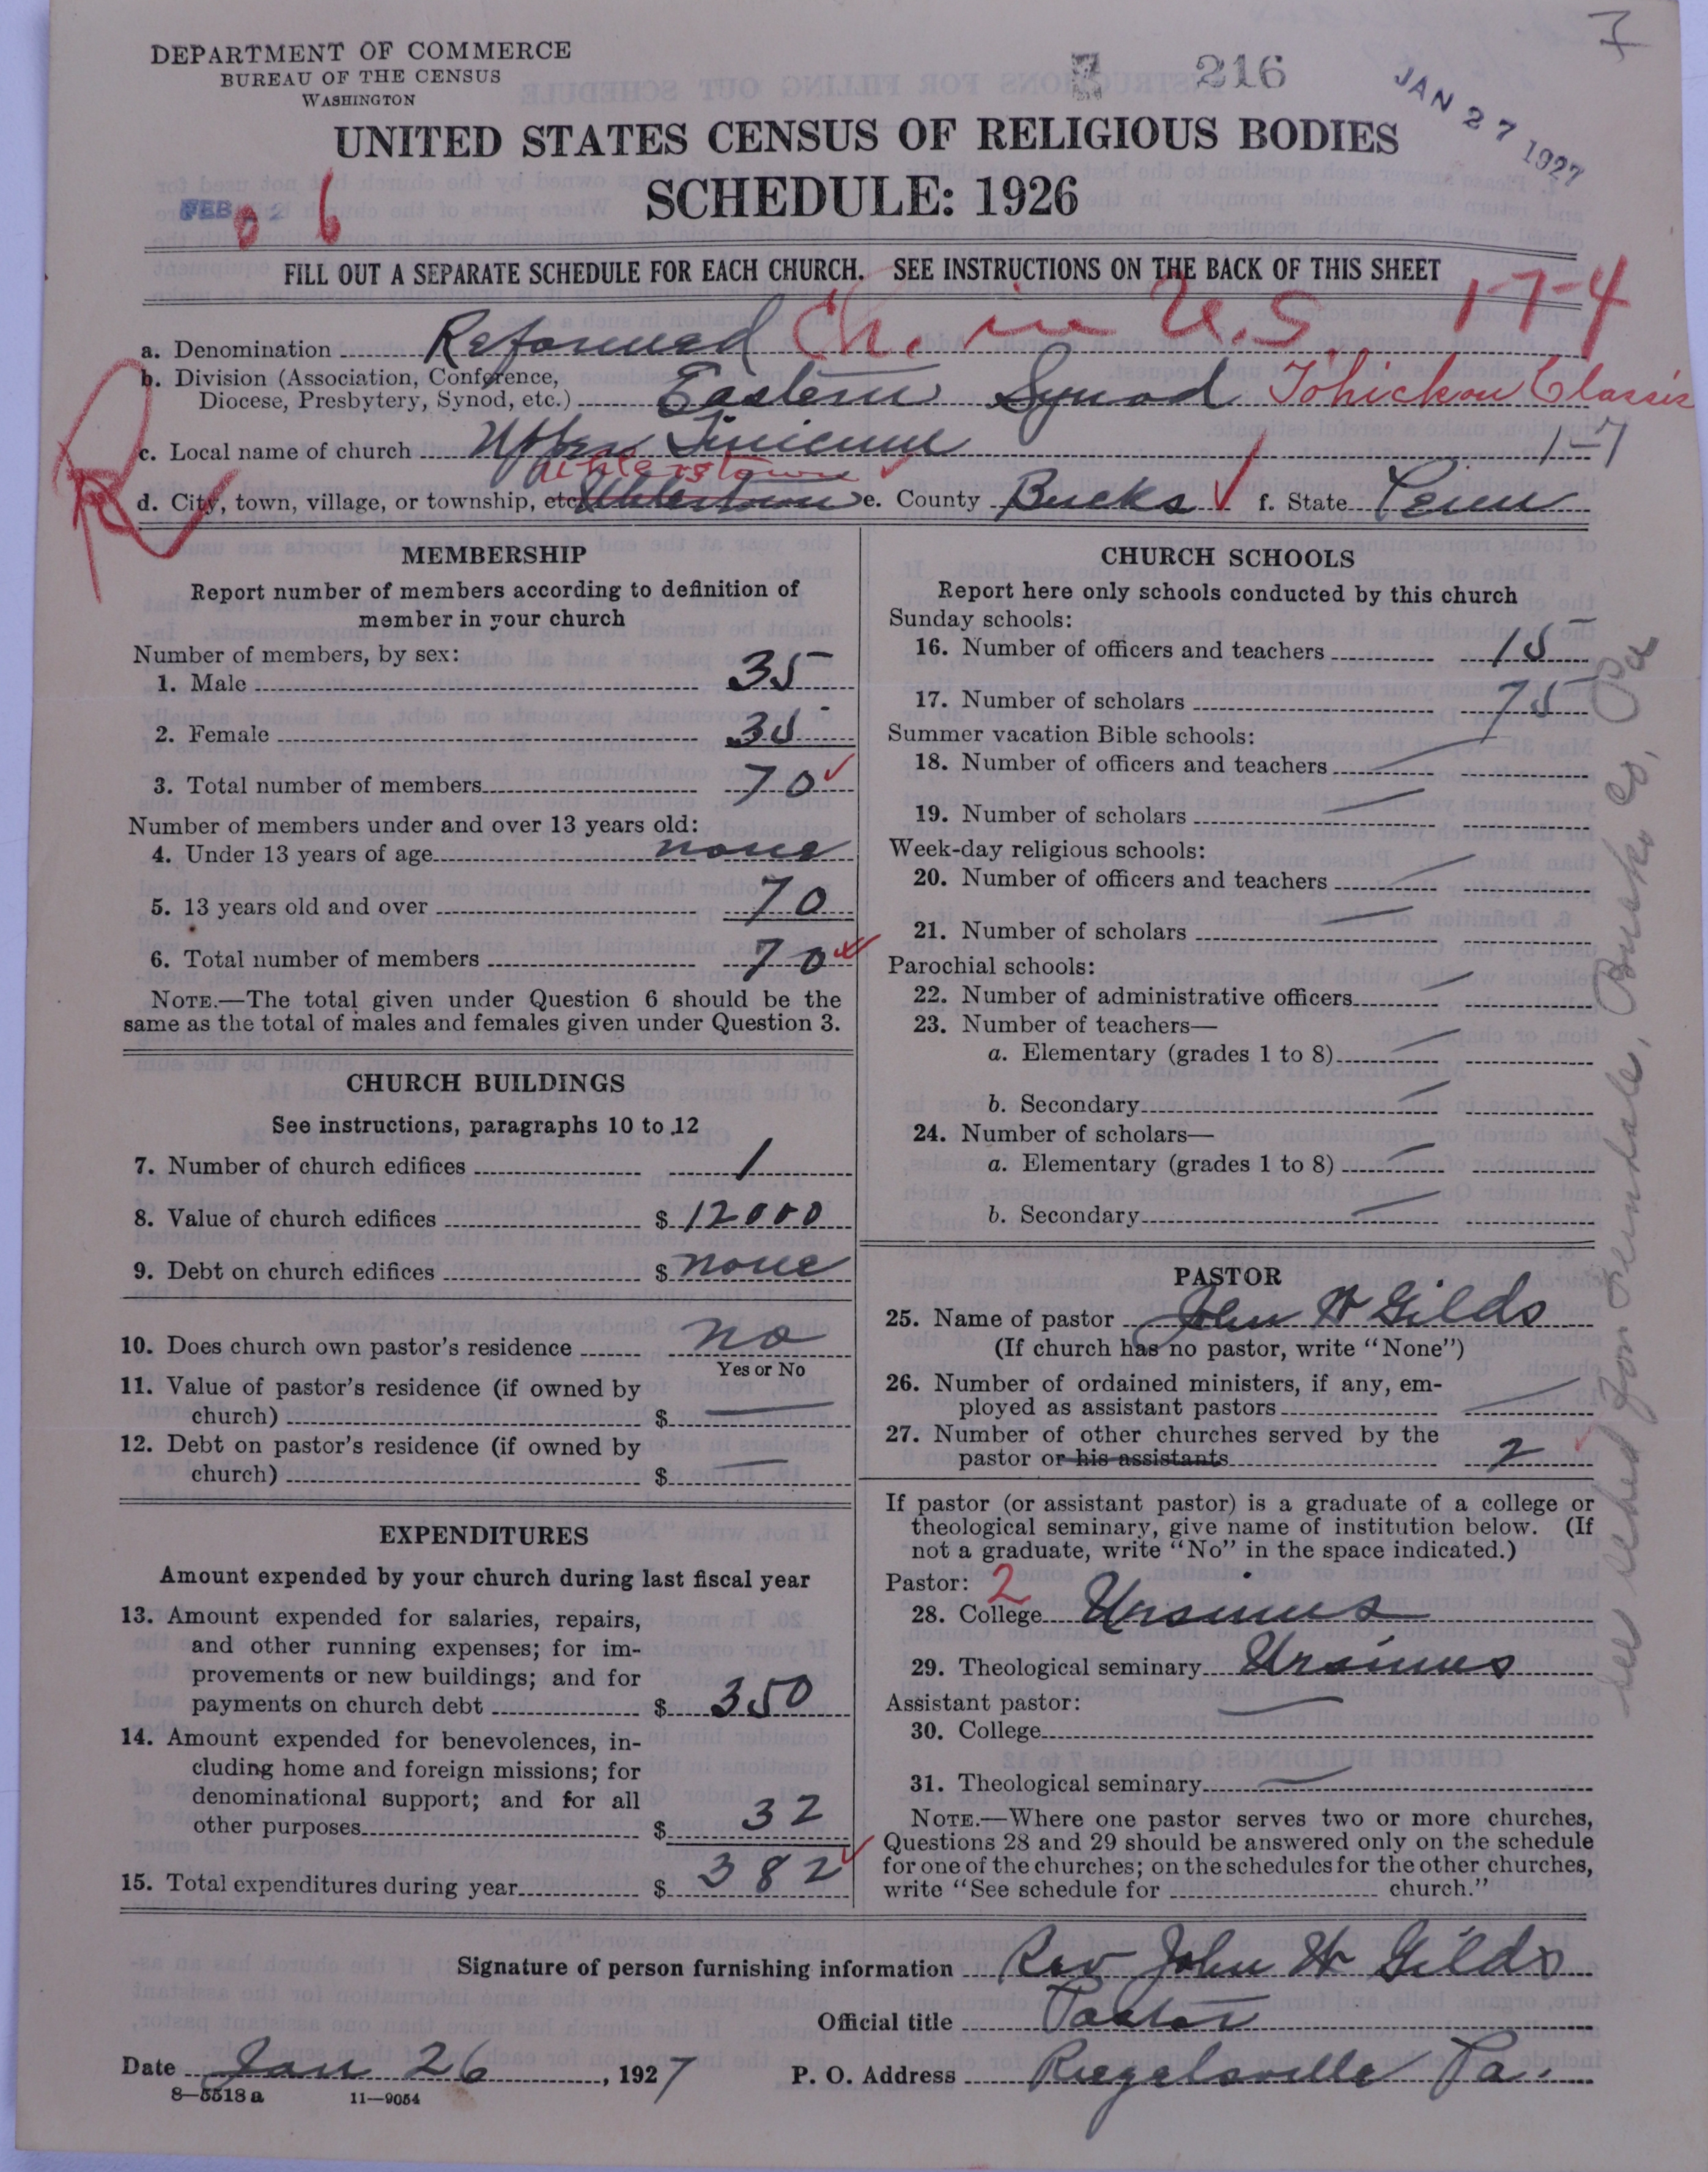 7
DEPARTMENT OF COMMERCE
BUREAU OF THE CENSUS
WASHINGTON
216
JAN 27 1927
UNITED STATES CENSUS OF RELIGIOUS BODIES
SCHEDULE: 1926
FEB
6
FILL OUT A SEPARATE SCHEDULE FOR EACH CHURCH. SEE INSTRUCTIONS ON THE BACK OF THIS SHEET
1-7-4
a. Denomination Reformed Ch. in U.S.
b. Division (Association, Conference,
Diocese, Presbytery, Synod, etc.) Eastern Synod Tohickon Classis
c. Local name of church Upper Tinicum 1-7
Uhlerstown
d. City, town, village, or township, etc. Uhlerstown e. County Bucks f. State Penn
MEMBERSHIP
Report number of members according to definition of
member in your church
Number of members, by sex:
1. Male 35
2. Female 35
3. Total number of members 70
Number of members under and over 13 years old:
4. Under 13 years of age none
5. 13 years old and over 70
6. Total number of members 70
NOTE.—The total given under Question 6 should be the
same as the total of males and females given under Question 3.
CHURCH BUILDINGS
See instructions, paragraphs 10 to 12
7. Number of church edifices 1
8. Value of church edifices $ 12000
9. Debt on church edifices $ none
10. Does church own pastor's residence no
Yes or No
11. Value of pastor's residence (if owned by
church) $ —
12. Debt on pastor's residence (if owned by
church) $ —
EXPENDITURES
Amount expended by your church during last fiscal year
13. Amount expended for salaries, repairs,
and other running expenses; for im-
provements or new buildings; and for
payments on church debt $ 350
14. Amount expended for benevolences, in-
cluding home and foreign missions; for
denominational support; and for all
other purposes $ 32
15. Total expenditures during year $ 382
CHURCH SCHOOLS
Report here only schools conducted by this church
Sunday schools:
16. Number of officers and teachers 15
17. Number of scholars 75
Summer vacation Bible schools:
18. Number of officers and teachers —
19. Number of scholars —
Week-day religious schools:
20. Number of officers and teachers —
21. Number of scholars —
Parochial schools:
22. Number of administrative officers —
23. Number of teachers—
a. Elementary (grades 1 to 8) —
b. Secondary —
24. Number of scholars—
a. Elementary (grades 1 to 8) —
b. Secondary —
PASTOR
25. Name of pastor John H Gilds
(If church has no pastor, write "None")
26. Number of ordained ministers, if any, em-
ployed as assistant pastors —
27. Number of other churches served by the
pastor or his assistants 2
If pastor (or assistant pastor) is a graduate of a college or
theological seminary, give name of institution below. (If
not a graduate, write "No" in the space indicated.)
Pastor: 2
28. College Ursinus
29. Theological seminary Ursinus
Assistant pastor: —
30. College
31. Theological seminary —
NOTE.—Where one pastor serves two or more churches,
Questions 28 and 29 should be answered only on the schedule
for one of the churches; on the schedules for the other churches,
write "See schedule for church."
See sched for Ferndale, Bucks Co, Pa
Signature of person furnishing information Rev John H Gilds
Official title Pastor
Date Jan 26, 1927
P. O. Address Riegelsville Pa.
8—5518 a 11—9054